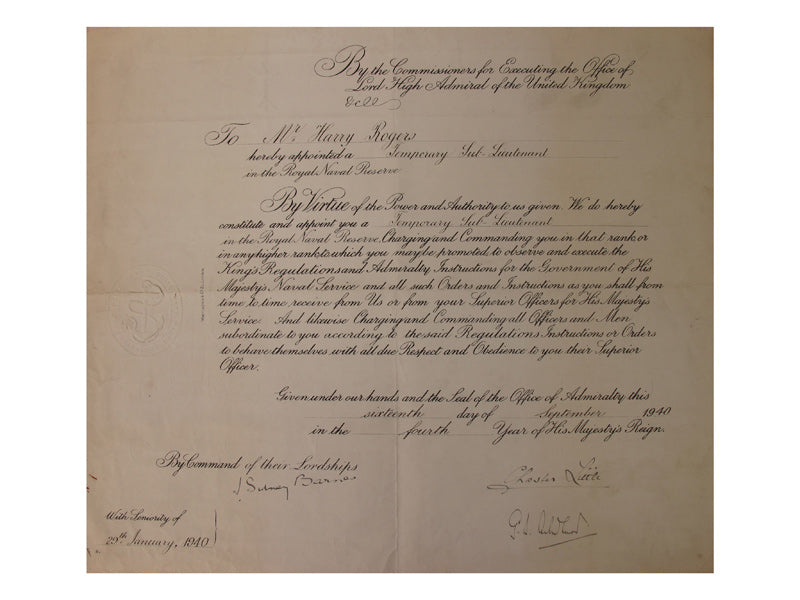 By the Commissioners for Executing the Office of
Lord High Admiral of the United Kingdom
&c &c
To Mr. Harry Rogers
hereby appointed a Temporary Sub-Lieutenant
in the Royal Naval Reserve
By Virtue of the Power and Authority to us given. We do hereby
constitute and appoint you a Temporary Sub-Lieutenant
in the Royal Naval Reserve. Charging and Commanding you in that rank or
in any higher rank to which you may be promoted, to observe and execute the
King's Regulations and Admiralty Instructions for the Government of His
Majesty's Naval Service and all such Orders and Instructions as you shall from
time to time receive from Us or from your Superior Officers for His Majesty's
Service. And likewise Charging and Commanding all Officers and Men
subordinate to you according to the said Regulations Instructions or Orders
to behave themselves with all due Respect and Obedience to you their Superior
Officer.
Given under our hands and the Seal of the Office of Admiralty this
sixteenth day of September 1940
in the fourth Year of His Majesty's Reign.
By Command of their Lordships
J. Sidney Barnes
Charles Little
With Seniority of
29th January, 1940